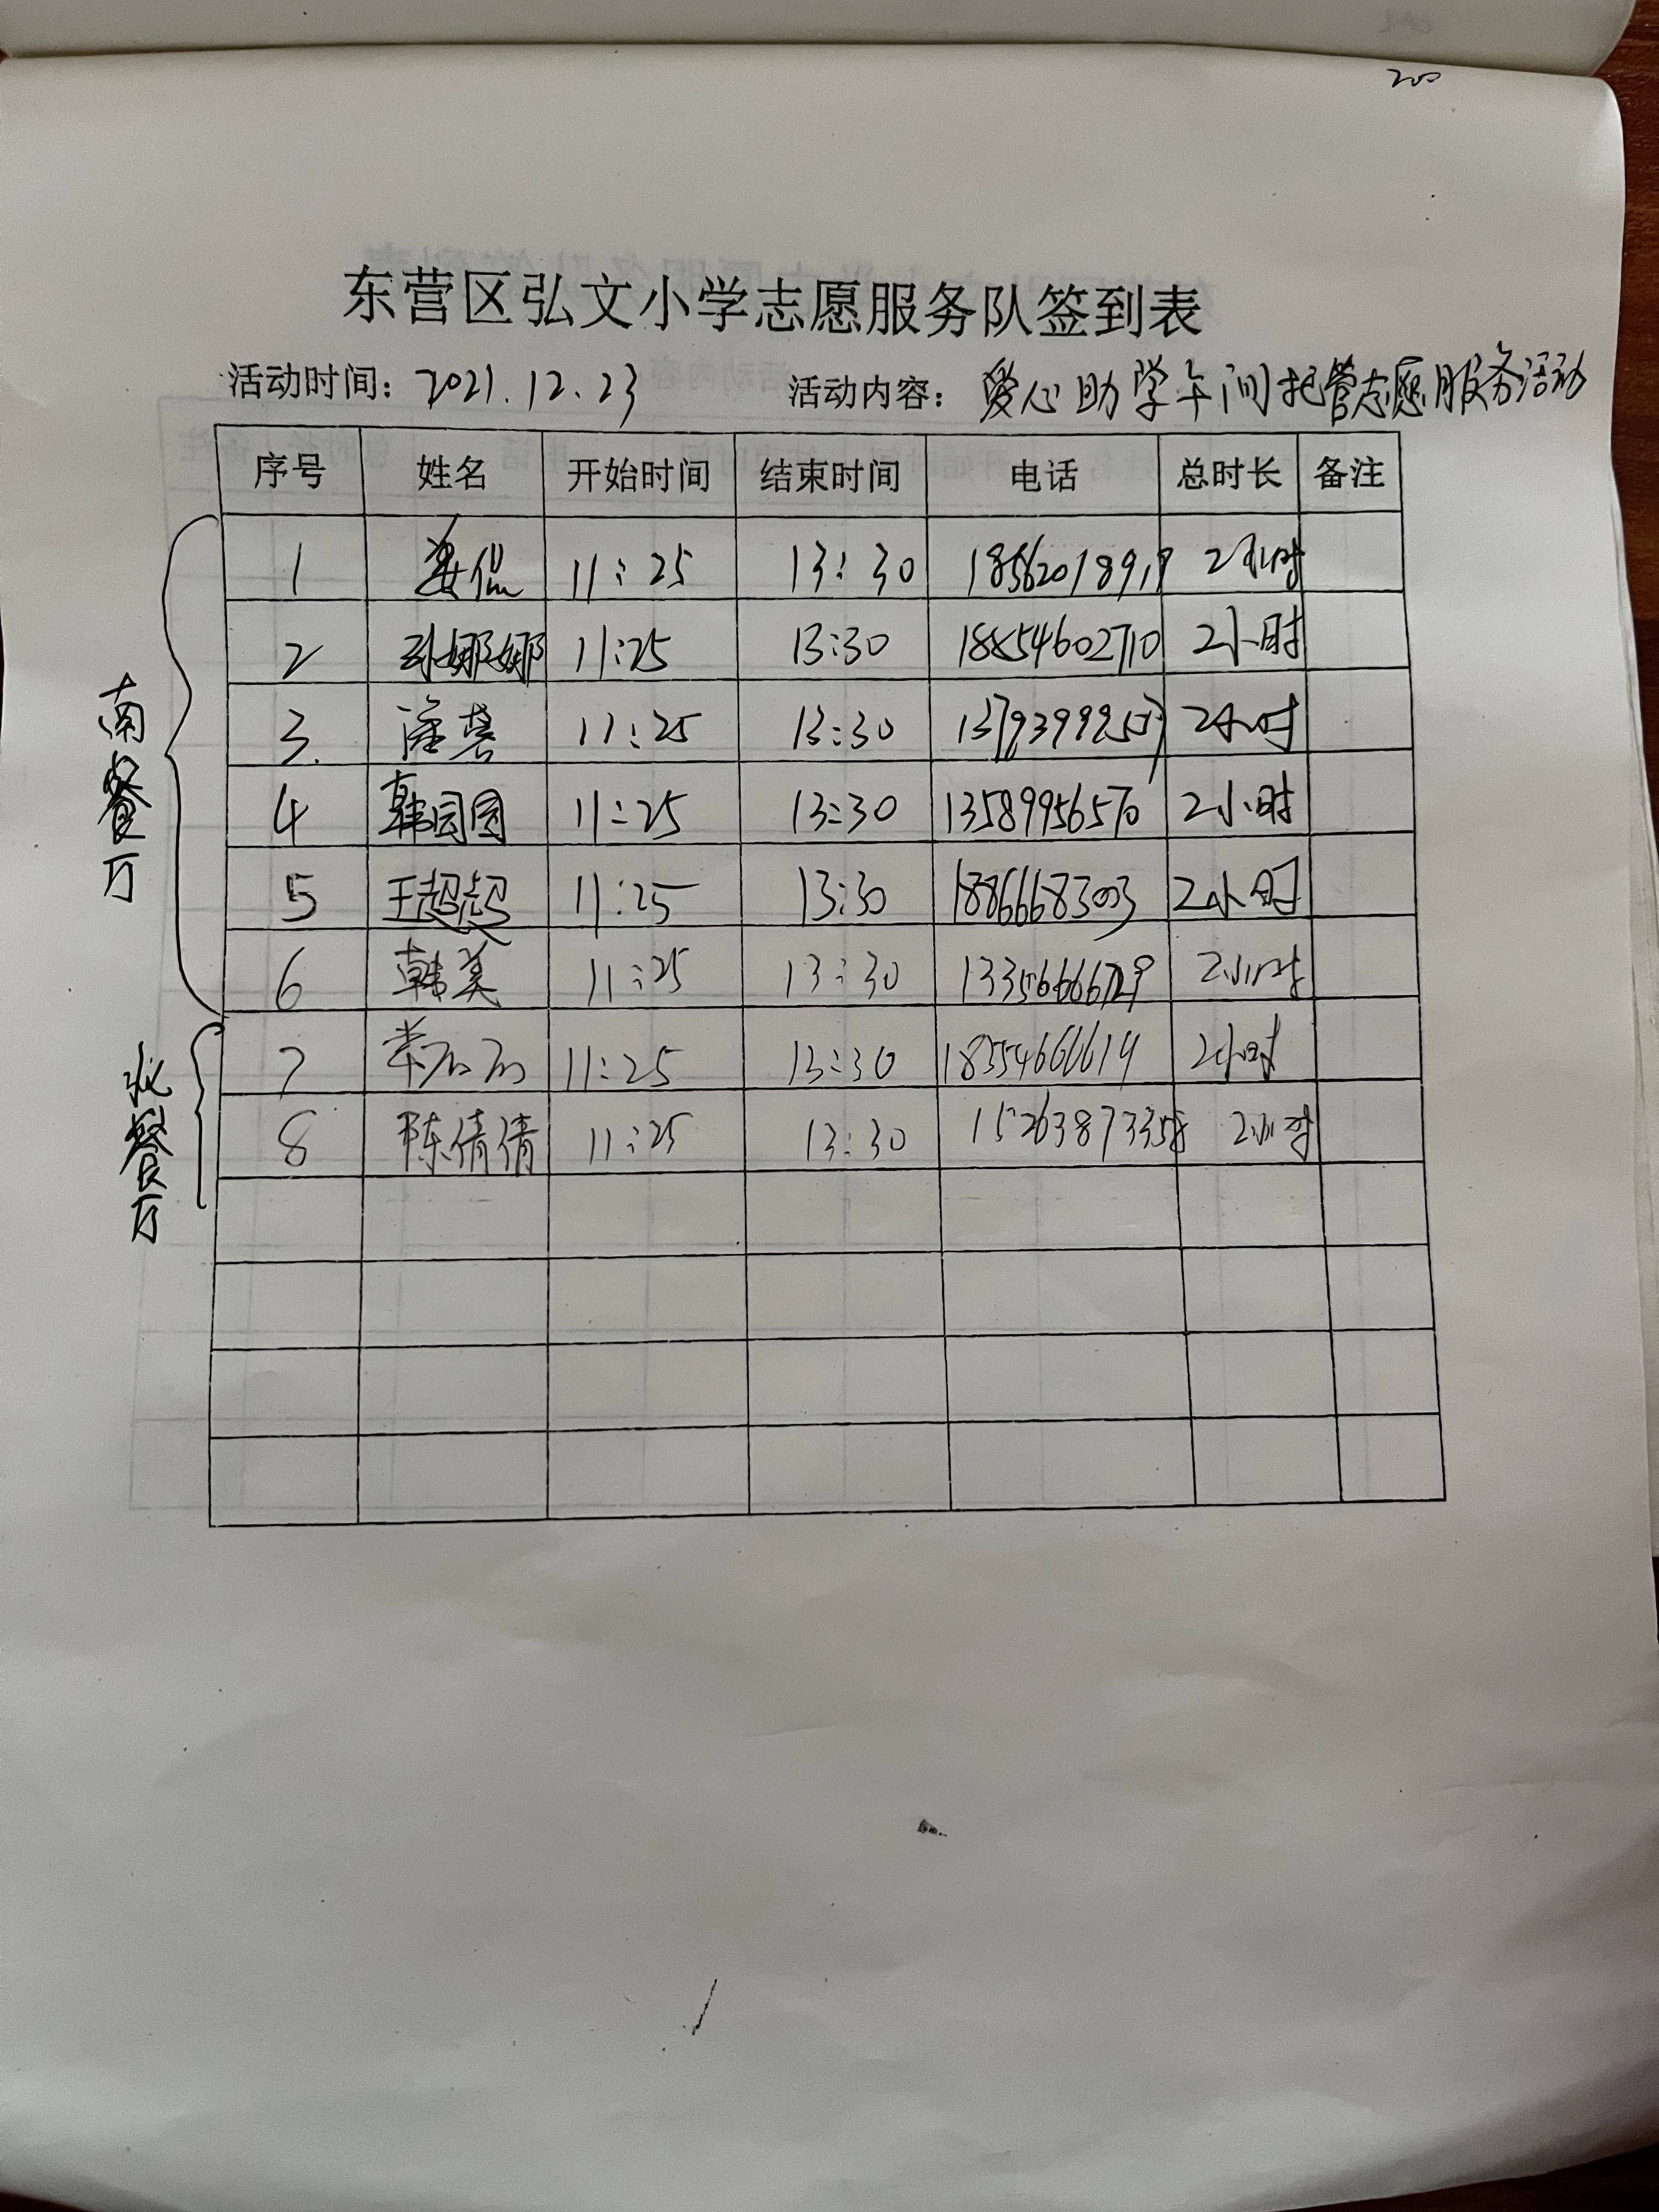 200
东营区弘文小学志愿服务队签到表
活动时间：2021.12.23 活动内容：爱心助学午间托管志愿服务活动
序号 姓名 开始时间 结束时间 电话 总时长 备注
1 姜 11:25 13:30 2小时
2 孙娜娜 11:25 13:30 18854602710 2小时
3. 11:25 13:30 2小时
4 韩园园 11:25 13:30 13589956570 2小时
5 王超超 11:25 13:30 18866683003 2小时
6 韩美 11:25 13:30 13356666729 2小时
7 11:25 13:30 2小时
8 陈倩倩 11:25 13:30 15263873358 2小时
南餐厅
北餐厅